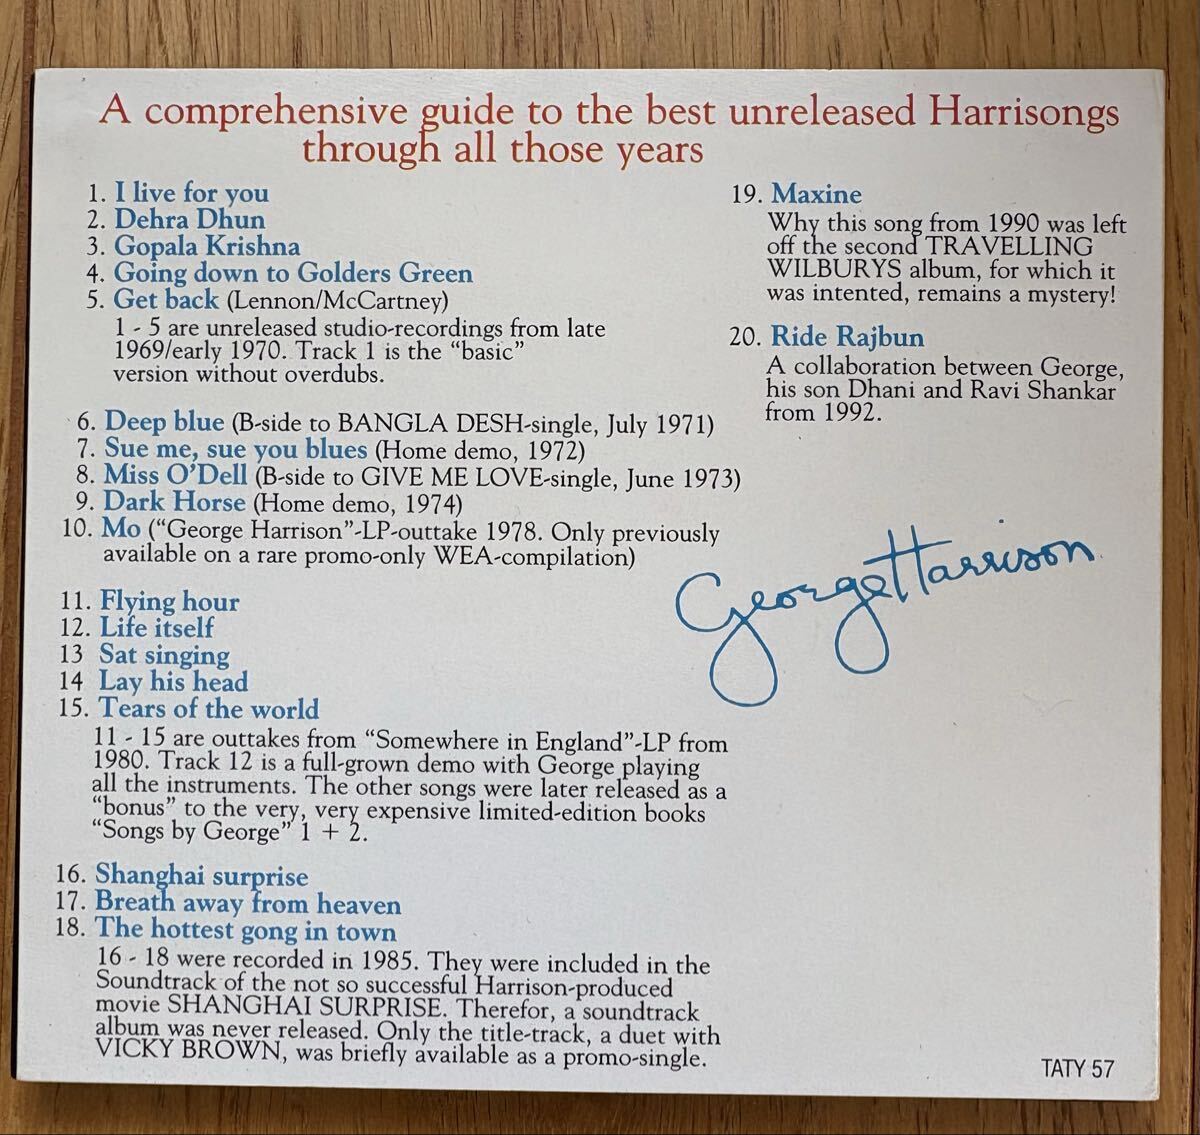 A comprehensive guide to the best unreleased Harrisongs
through all those years
1. I live for you
2. Dehra Dhun
3. Gopala Krishna
4. Going down to Golders Green
5. Get back (Lennon/McCartney)
1 - 5 are unreleased studio-recordings from late
1969/early 1970. Track 1 is the “basic”
version without overdubs.
6. Deep blue (B-side to BANGLA DESH-single, July 1971)
7. Sue me, sue you blues (Home demo, 1972)
8. Miss O'Dell (B-side to GIVE ME LOVE-single, June 1973)
9. Dark Horse (Home demo, 1974)
10. Mo (“George Harrison”-LP-outtake 1978. Only previously
available on a rare promo-only WEA-compilation)
11. Flying hour
12. Life itself
13 Sat singing
14 Lay his head
15. Tears of the world
11 - 15 are outtakes from “Somewhere in England”-LP from
1980. Track 12 is a full-grown demo with George playing
all the instruments. The other songs were later released as a
“bonus” to the very, very expensive limited-edition books
“Songs by George” 1 + 2.
16. Shanghai surprise
17. Breath away from heaven
18. The hottest gong in town
16 - 18 were recorded in 1985. They were included in the
Soundtrack of the not so successful Harrison-produced
movie SHANGHAI SURPRISE. Therefor, a soundtrack
album was never released. Only the title-track, a duet with
VICKY BROWN, was briefly available as a promo-single.
19. Maxine
Why this song from 1990 was left
off the second TRAVELLING
WILBURYS album, for which it
was intented, remains a mystery!
20. Ride Rajbun
A collaboration between George,
his son Dhani and Ravi Shankar
from 1992.
George Harrison
TATY 57